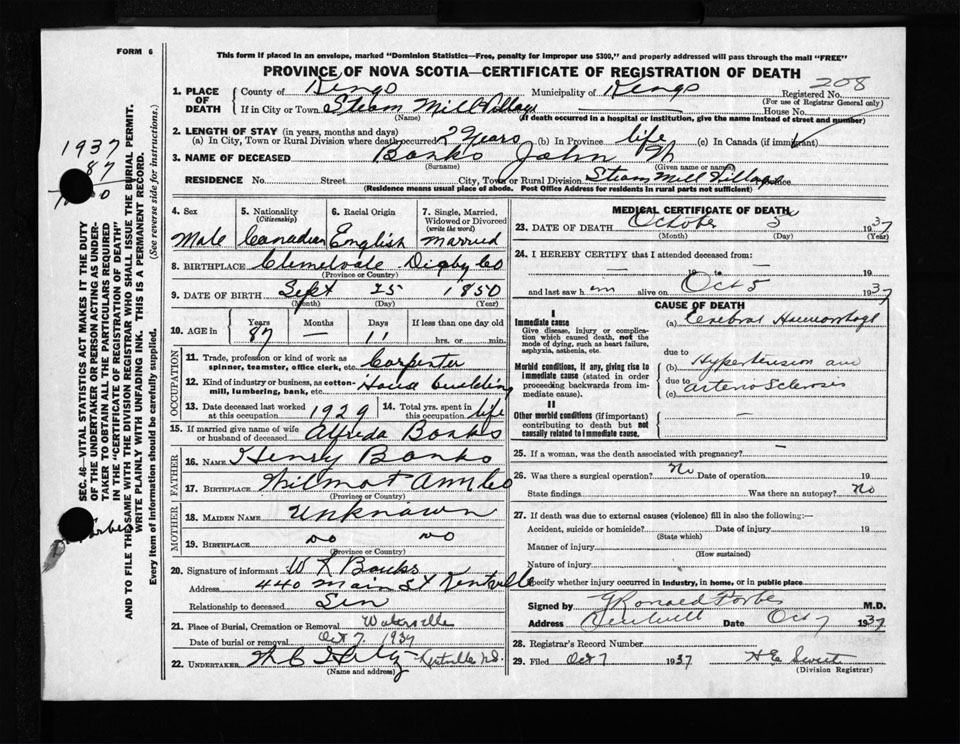 FORM 6
This form if placed in an envelope, marked "Dominion Statistics—Free, penalty for improper use $300," and properly addressed will pass through the mail "FREE"
PROVINCE OF NOVA SCOTIA—CERTIFICATE OF REGISTRATION OF DEATH
208
1. PLACE OF DEATH County of Kings Municipality of Kings Registered No.
(For use of Registrar General only)
If in City or Town Steam Mill Village House No.
(Name) (If death occurred in a hospital or institution, give the name instead of street and number)
2. LENGTH OF STAY (in years, months and days)
(a) In City, Town or Rural Division where death occurred 2 Years (b) In Province life (c) In Canada (if immigrant)
3. NAME OF DECEASED Banks John
(Surname) (Given name or names)
RESIDENCE No. Street City, Town or Rural Division Steam Mill Village Province
(Residence means usual place of abode. Post Office Address for residents in rural parts not sufficient)
4. Sex Male
5. Nationality (Citizenship) Canadian
6. Racial Origin English
7. Single, Married, Widowed or Divorced (write the word) married
8. BIRTHPLACE Digby Co
(Province or Country)
9. DATE OF BIRTH Sept 25 1850
(Month) (Day) (Year)
10. AGE in Years Months Days If less than one day old
87 — 11 hrs. or min.
OCCUPATION
11. Trade, profession or kind of work as spinner, teamster, office clerk, etc. Carpenter
12. Kind of industry or business, as cotton-mill, lumbering, bank, etc. House building
13. Date deceased last worked at this occupation 1929
14. Total yrs. spent in this occupation life
15. If married give name of wife or husband of deceased Alfreda Banks
FATHER
16. NAME Henry Banks
17. BIRTHPLACE Wilmot Ann Co
(Province or Country)
MOTHER
18. MAIDEN NAME Unknown
19. BIRTHPLACE do do
(Province or Country)
20. Signature of informant Banks
Address 440 Main St Kentville
Relationship to deceased Son
21. Place of Burial, Cremation or Removal Waterville
Date of burial or removal Oct 7 1937
22. UNDERTAKER Kentville N.S.
(Name and address)
MEDICAL CERTIFICATE OF DEATH
23. DATE OF DEATH October 5 1937
(Month) (Day) (Year)
24. I HEREBY CERTIFY that I attended deceased from—
— 19 to — 19
and last saw him alive on Oct 5 1937
CAUSE OF DEATH
I
Immediate cause
Give disease, injury or complication which caused death, not the mode of dying, such as heart failure, asphyxia, asthenia, etc.
(a) Cerebral Haemorrhage
due to
Morbid conditions, if any, giving rise to immediate cause (stated in order proceeding backwards from immediate cause)
(b) Hypertension and
due to
(c) arterio Sclerosis
II
Other morbid conditions (if important) contributing to death but not causally related to immediate cause.
—
25. If a woman, was the death associated with pregnancy? —
26. Was there a surgical operation? No Date of operation 19
State findings Was there an autopsy? No
27. If death was due to external causes (violence) fill in also the following:—
Accident, suicide or homicide? Date of injury 19
(State which)
Manner of injury
(How sustained)
Nature of injury
Specify whether injury occurred in industry, in home, or in public place
Signed by Ronald Forbes M.D.
Address Date Oct 7 1937
28. Registrar's Record Number
29. Filed Oct 7 1937
(Division Registrar)
SEC. 46—VITAL STATISTICS ACT MAKES IT THE DUTY
OF THE UNDERTAKER OR PERSON ACTING AS UNDER-
TAKER TO OBTAIN ALL THE PARTICULARS REQUIRED
IN THE "CERTIFICATE OF REGISTRATION OF DEATH"
AND TO FILE THE SAME WITH THE DIVISION REGISTRAR WHO SHALL ISSUE THE BURIAL PERMIT.
WRITE PLAINLY WITH UNFADING INK. THIS IS A PERMANENT RECORD.
Every item of information should be carefully supplied. (See reverse side for instructions.)
1937
87